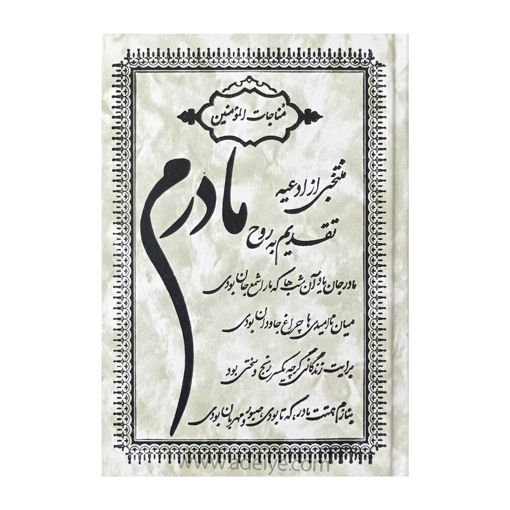 مناجات المؤمنین
منتخبی از ادعیه
تقدیم به روح
مادرم
مادر جان یاد آن شب ها که ما را شمع جان بودی
میان ناامیدی ها چراغ جاودان بودی
برایت زندگانی گرچه یکسر رنج و سختی بود
بنازم همتت مادر، که تا بودی صبور و مهربان بودی
www.adeiye.com